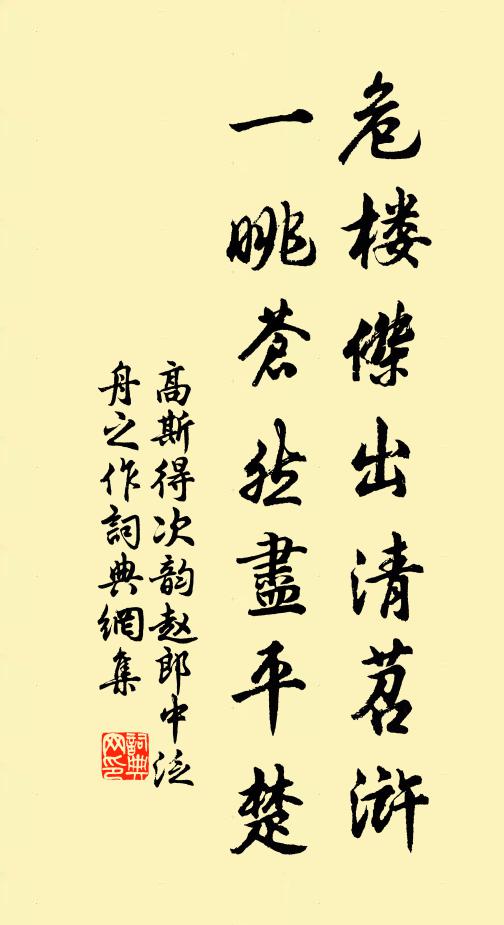 危楼傑出清苕滸
一眺蒼然盡平楚
高斯得次韵赵郎中泛
舟之作詞典網集
詞典
网印